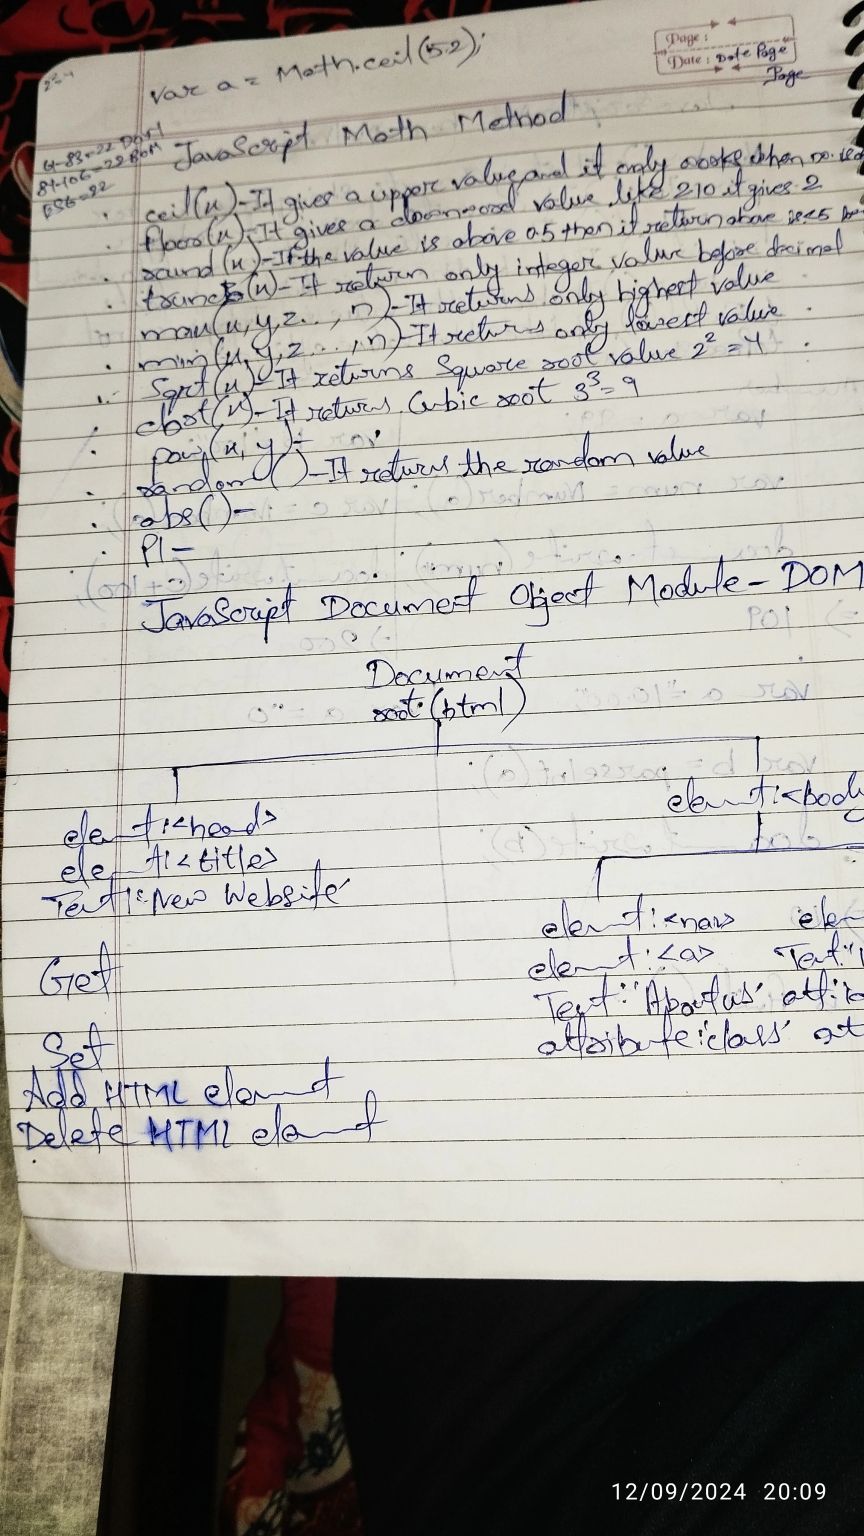 var a = Math.ceil(5.2);
Page :
Date : Date Page
Page
JavaScript Math Method
ceil(x)-It gives a upper value and it only works when
floor(x)-It gives a downword value like 2.10 it gives 2
round(x)-If the value is above 0.5 then it return above
trunc(x)-It return only integer value before decimal
max(x,y,z...,n)-It returns only highest value
min(x,y,z...,n)-It returns only lowest value
Sqrt(x)-It returns Square root value 2² = 4
cbot(x)-It returns Cubic root 3³ = 9
pow(x, y)-
random()-It returns the random value
abs()-
PI-
JavaScript Document Object Module - DOM
Document
root:(html)
element:<head>
element:<body
element:<title>
Text:"New Website"
element:<nav>
element:<a>
Text:"
Text:"About us"
attribute:"class"
Get
Set
Add HTML element
Delete HTML element
12/09/2024 20:09